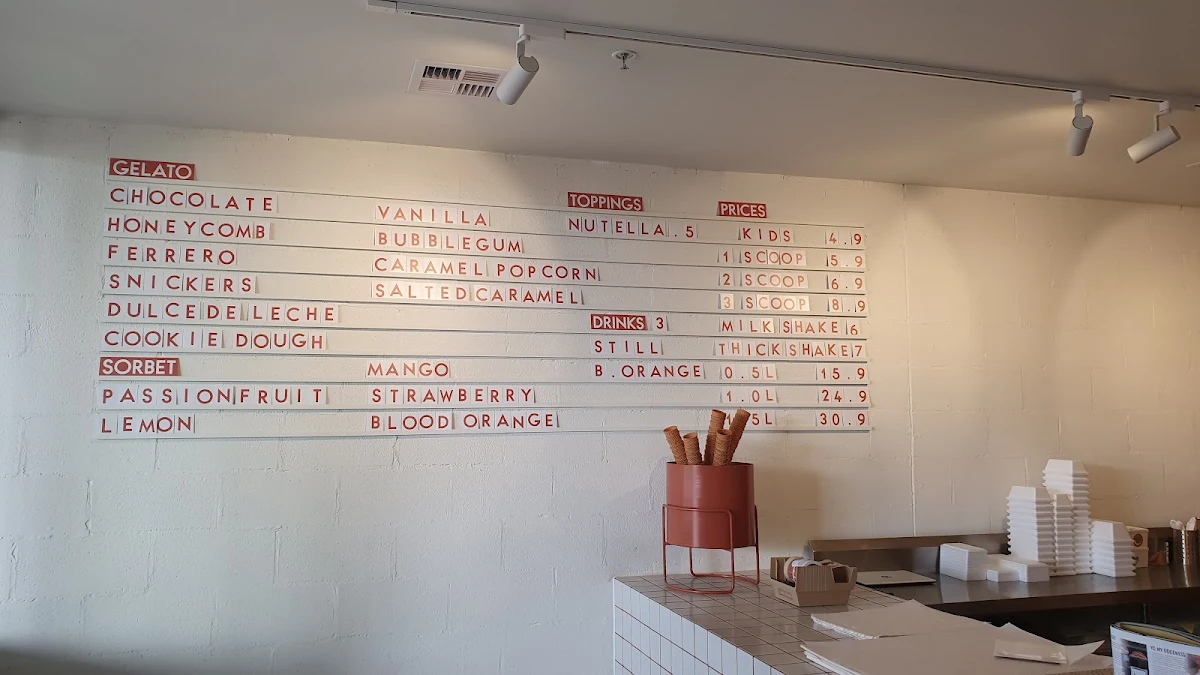 GELATO
CHOCOLATE
HONEYCOMB
FERRERO
SNICKERS
DULCE DE LECHE
COOKIE DOUGH
VANILLA
BUBBLEGUM
CARAMEL POPCORN
SALTED CARAMEL
SORBET
PASSIONFRUIT
LEMON
MANGO
STRAWBERRY
BLOOD ORANGE
TOPPINGS
NUTELLA .5
DRINKS 3
STILL
B.ORANGE
PRICES
KIDS 4.9
1 SCOOP 5.9
2 SCOOP 6.9
3 SCOOP 8.9
MILK SHAKE 6
THICKSHAKE 7
0.5L 15.9
1.0L 24.9
5L 30.9